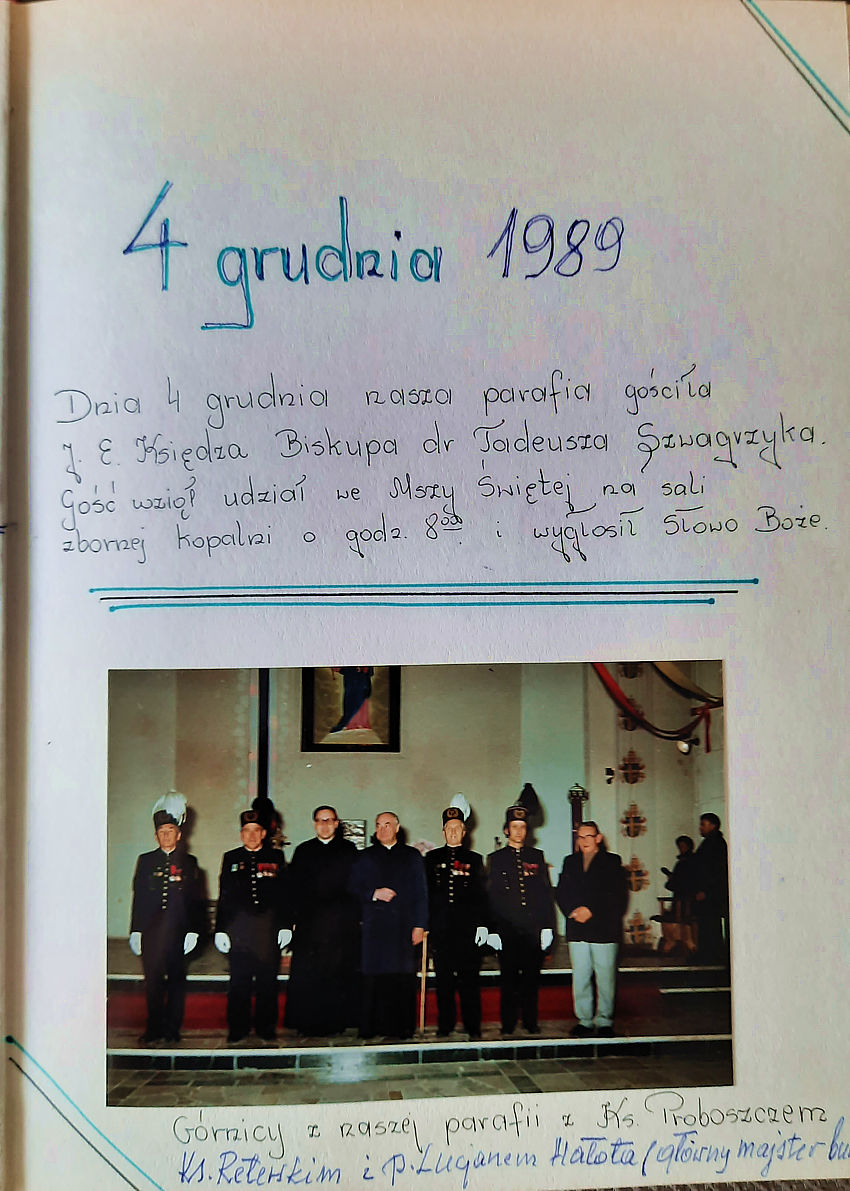 4 grudnia 1989
Dnia 4 grudnia nasza parafia gościła
J. E. Księdza Biskupa dr Tadeusza Szwagrzyka.
Gość wziął udział we Mszy Świętej na sali
zbornej kopalni o godz. 8⁰⁰ i wygłosił Słowo Boże.
Górnicy z naszej parafii z Ks. Proboszczem
Ks. Reterskim i p. Lucjanem Hałota (główny majster bu